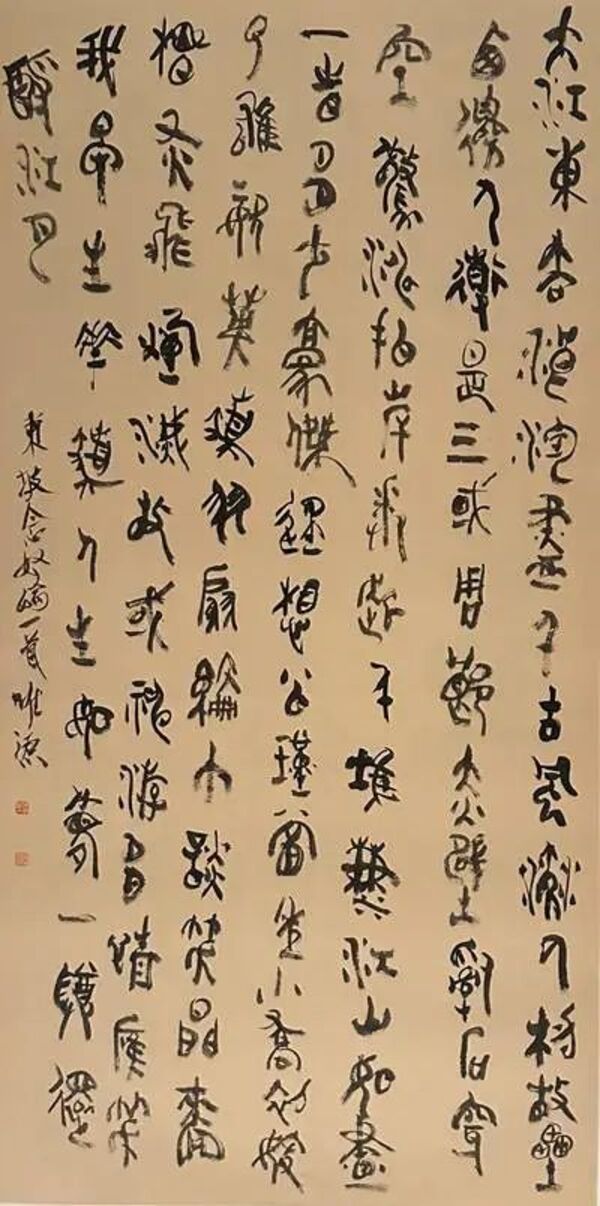 大江東去浪淘盡千古風流人物故壘
西邊人道是三國周郎赤壁亂石穿
空驚濤拍岸卷起千堆雪江山如畫
一時多少豪傑遙想公瑾當年小喬初嫁
了雄姿英發羽扇綸巾談笑間檣
櫓灰飛煙滅故國神遊多情應笑
我早生華髮人生如夢一尊還
酹江月
東坡念奴嬌一首